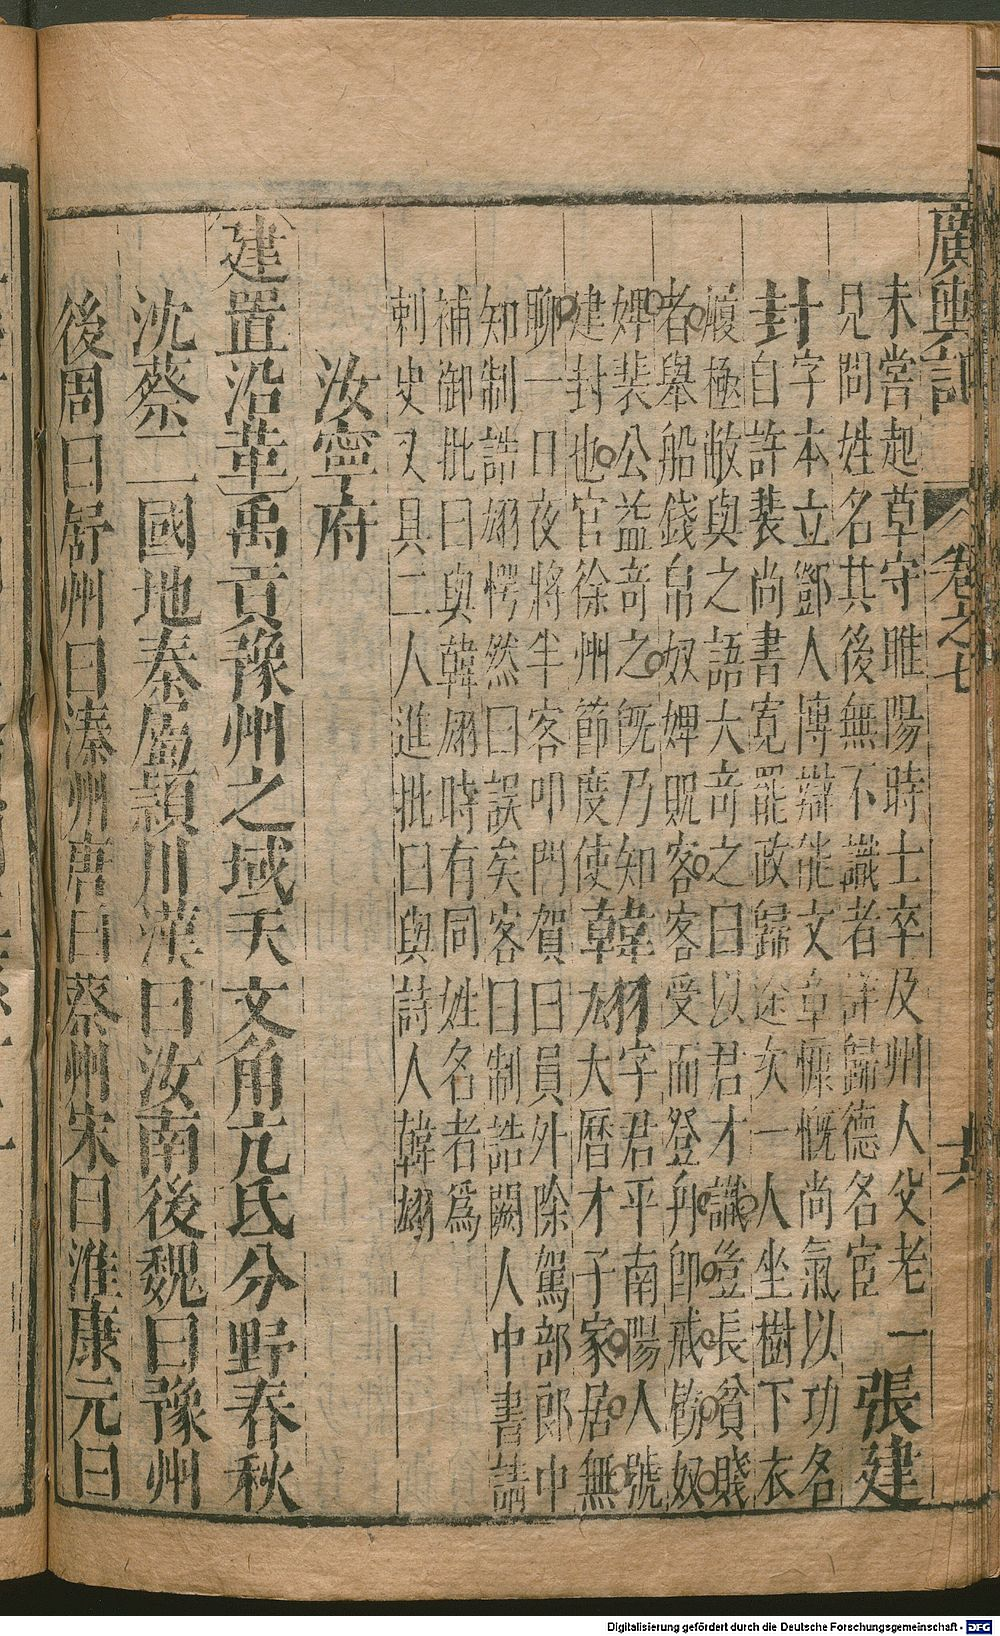 廣輿記 卷之七 十六
未嘗起草守睢陽時士卒及州人父老一
見問姓名其後無不識者詳歸德名宦 張建
封字本立鄧人博辯能文章慷慨尚氣以功名
自許裴尚書寬罷政歸途次一人坐樹下衣
履極敝與之語大奇之曰以君才識豈長貧賤
者舉船錢帛奴婢貺客客受而登舟卽戒飭奴
婢裴公益奇之旣乃知 韓翃字君平南陽人號
建封也官徐州節度使 大曆才子家居無
聊一日夜將半客叩門賀曰員外除駕部郎中
知制誥翃愕然曰誤矣客曰制誥闕人中書請
補御批曰與韓翃時有同姓名者爲
刺史又具二人進批曰與詩人韓翃
汝寧府
建置沿革禹貢豫州之域天文角亢氐分野春秋
沈蔡二國地秦屬潁川漢曰汝南後魏曰豫州
後周曰舒州曰溱州唐曰蔡州宋曰淮康元曰
Digitalisierung gefördert durch die Deutsche Forschungsgemeinschaft - DFG